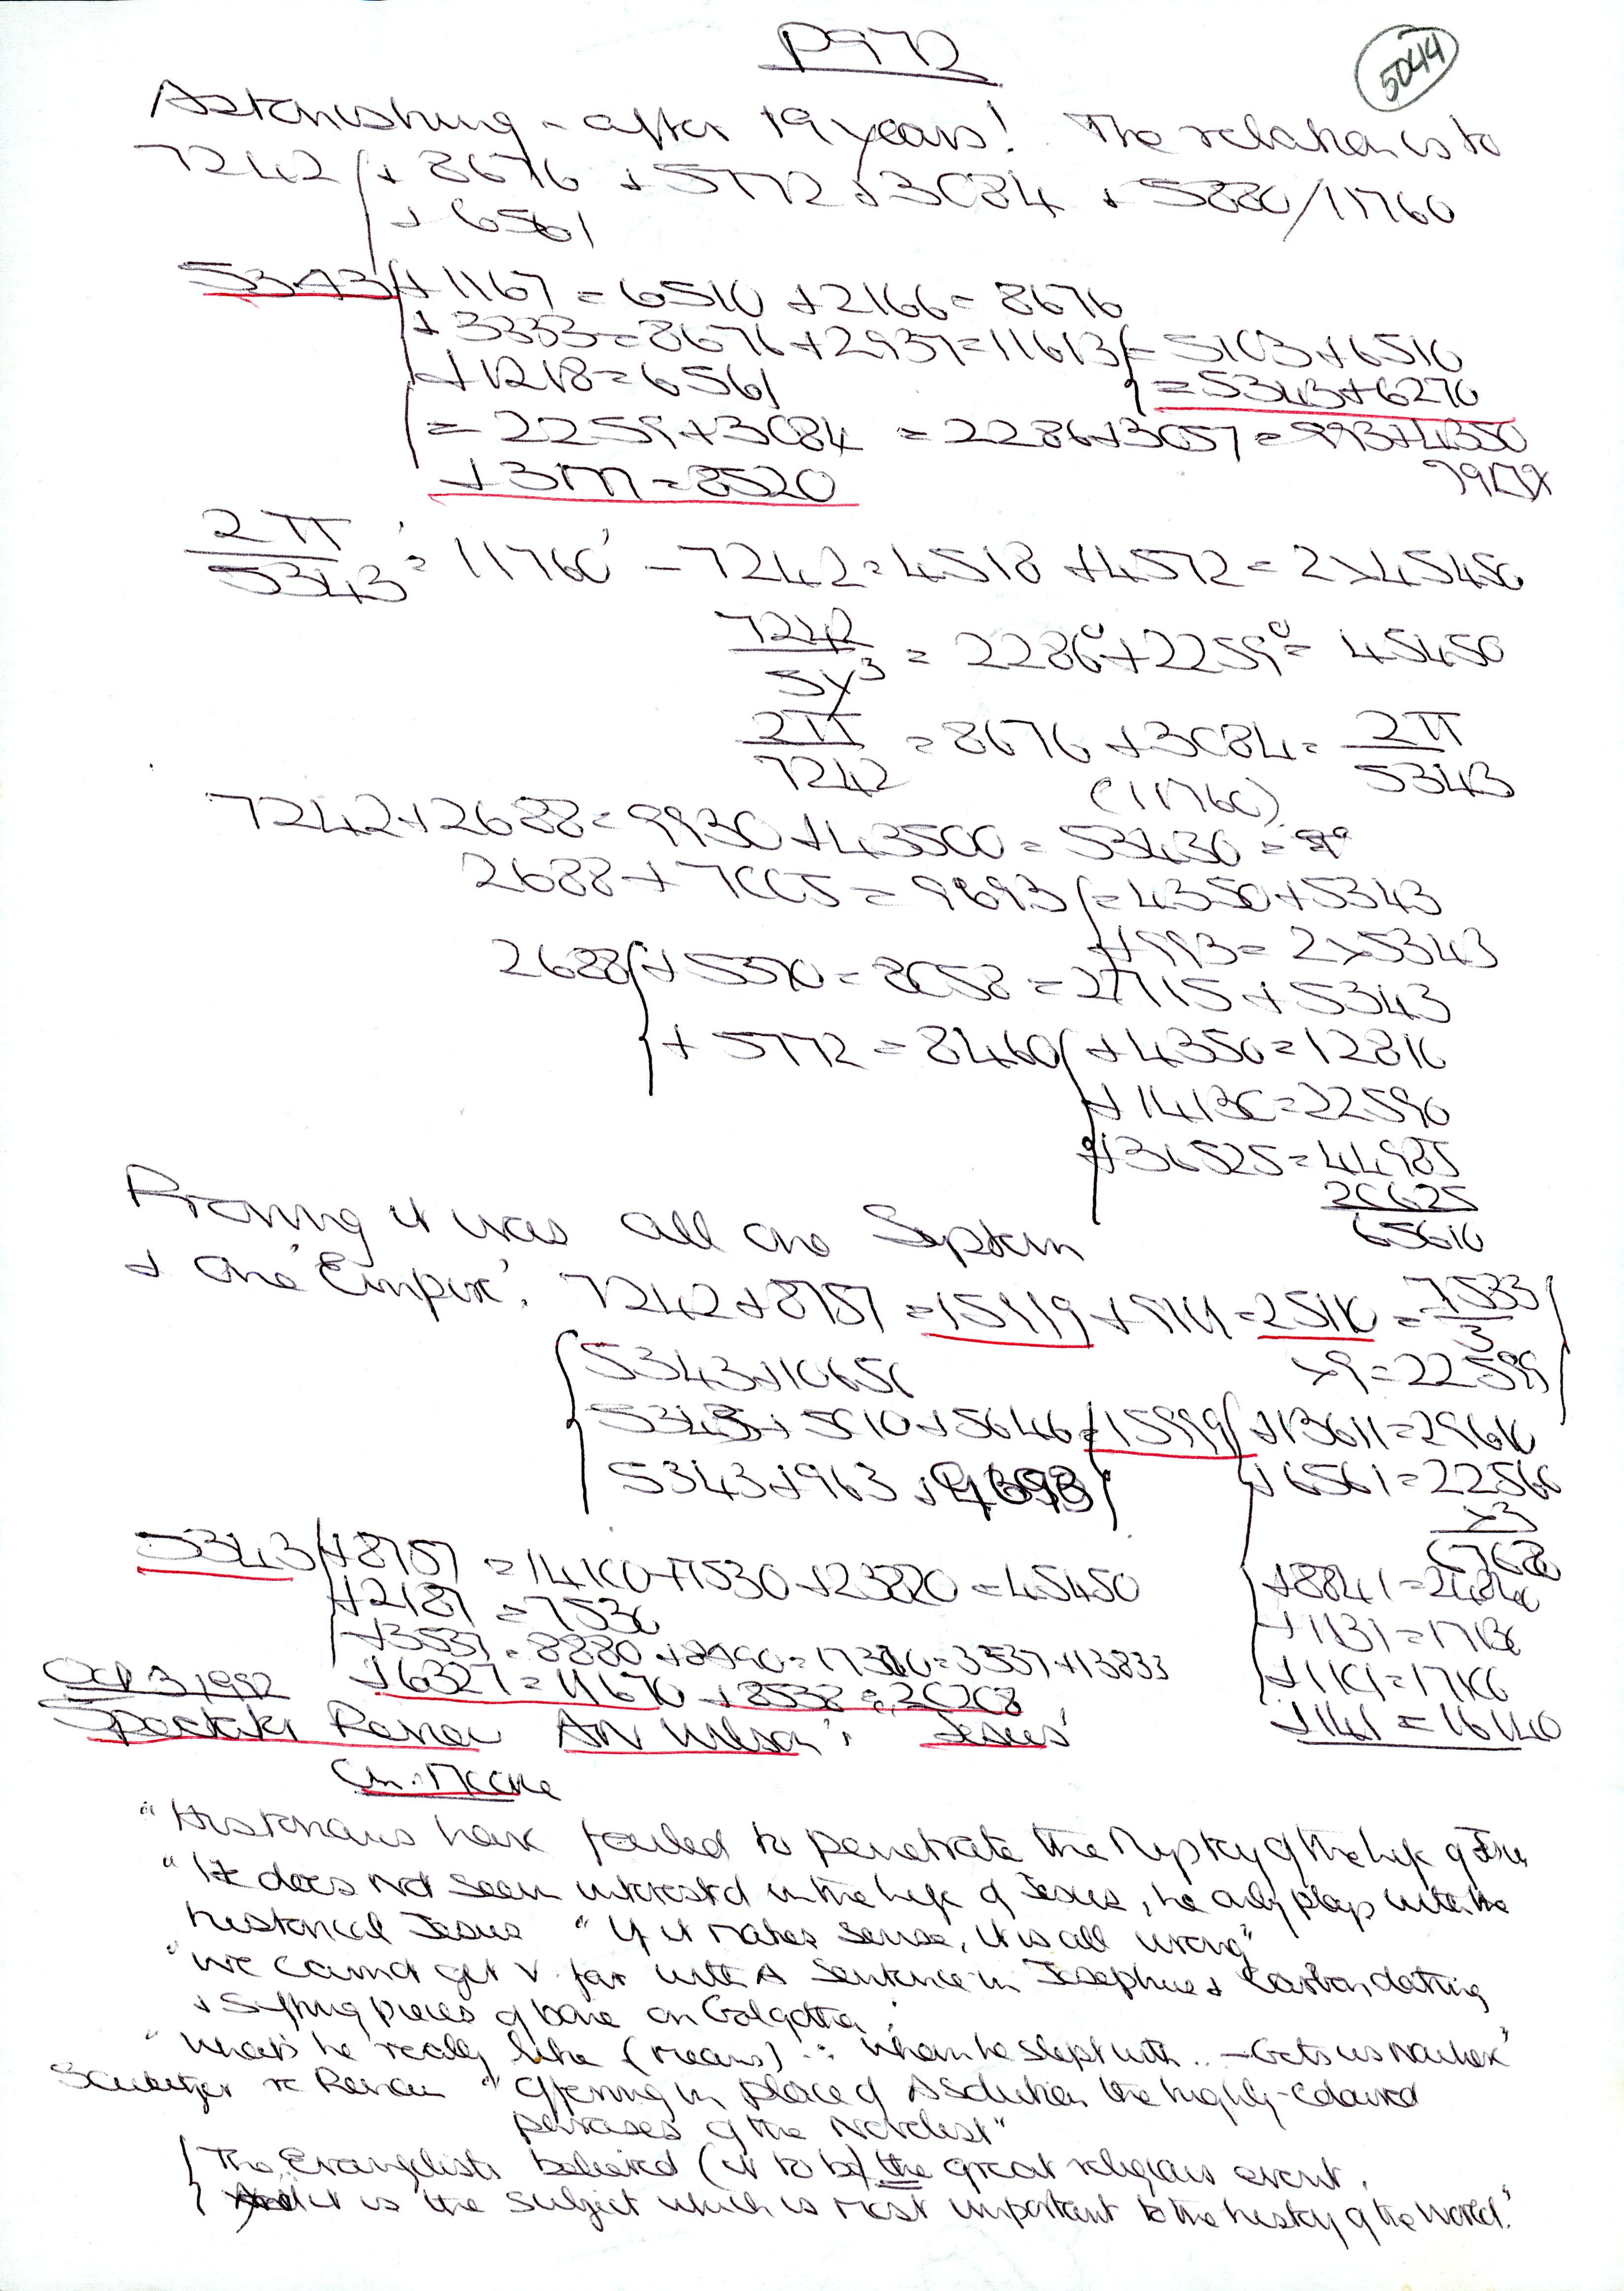 P972
5044
Astonishing - after 19 years! The relation is to
7242 + 8676 + 5772 + 3084 + 5880/11760
+ 6561
5343 + 1167 = 6510 + 2166 = 8676
+ 3333 = 8676 + 2937 = 11613 = 5103 + 6510
+ 1218 = 6561 = 5343 + 6270
= 2259 + 3084 = 2286 + 3057 = 993 + 4350
+ 3177 = 8520
2π/5343 = 11760 - 7242 = 4518 + 4572 = 2 × 4545
7242/5y³ = 2286° + 2259° = 45450
2π/7242 = 8676 + 3084 = 2π/5343
(11760)
7242 + 2688 = 9930 + 43500 = 53430 =
2688 + 7005 = 9693 = 4350 + 5343
+ 993 = 2 × 5343
2688 + 5370 = 8058 = 2715 + 5343
+ 5772 = 8460 + 4350 = 12810
+ 14130 = 22590
+ 36525 = 44985
20625
65610
Proving it was all one System
+ One 'Empire'. 7242 + 8757 = 15999 + 9111 = 25110 = 7533/3
5343 + 10656 × 9 = 22599
5343 + 5010 + 5646 = 15999 + 13611 = 29610
5343 + 963 + 9693 + 6561 = 22560
×3
67680
5343 + 8757 = 14100 + 7530 + 23820 = 45450
+ 8841 = 24840
+ 2187 = 7530
+ 1131 = 17130
+ 3537 = 8880 + 8490 = 17370 = 3537 + 13833
+ 1101 = 17100
Oct 3 1992 + 6327 = 11670 + 8538 = 20208
+ 141 = 16140
Spectator Review AN Wilson's 'Jesus'
Ch. Moore
"Historians have failed to penetrate the Mystery of the life of Jesus
"He does not seem interested in the life of Jesus, he only plays with the
historical Jesus "If it makes sense, it is all wrong"
"We cannot get v. far with A Sentence in Josephus + Carbon dating
+ Sifting pieces of bone on Golgotha
"What's he really like (means) : whom he slept with .. - Gets us nowhere"
Schweitzer re Renan "Offering in place of A solution the highly-coloured
phrases of the Novelist"
The Evangelists believed (it to be) the great religious event.
And it is the subject which is most important to the history of the World."